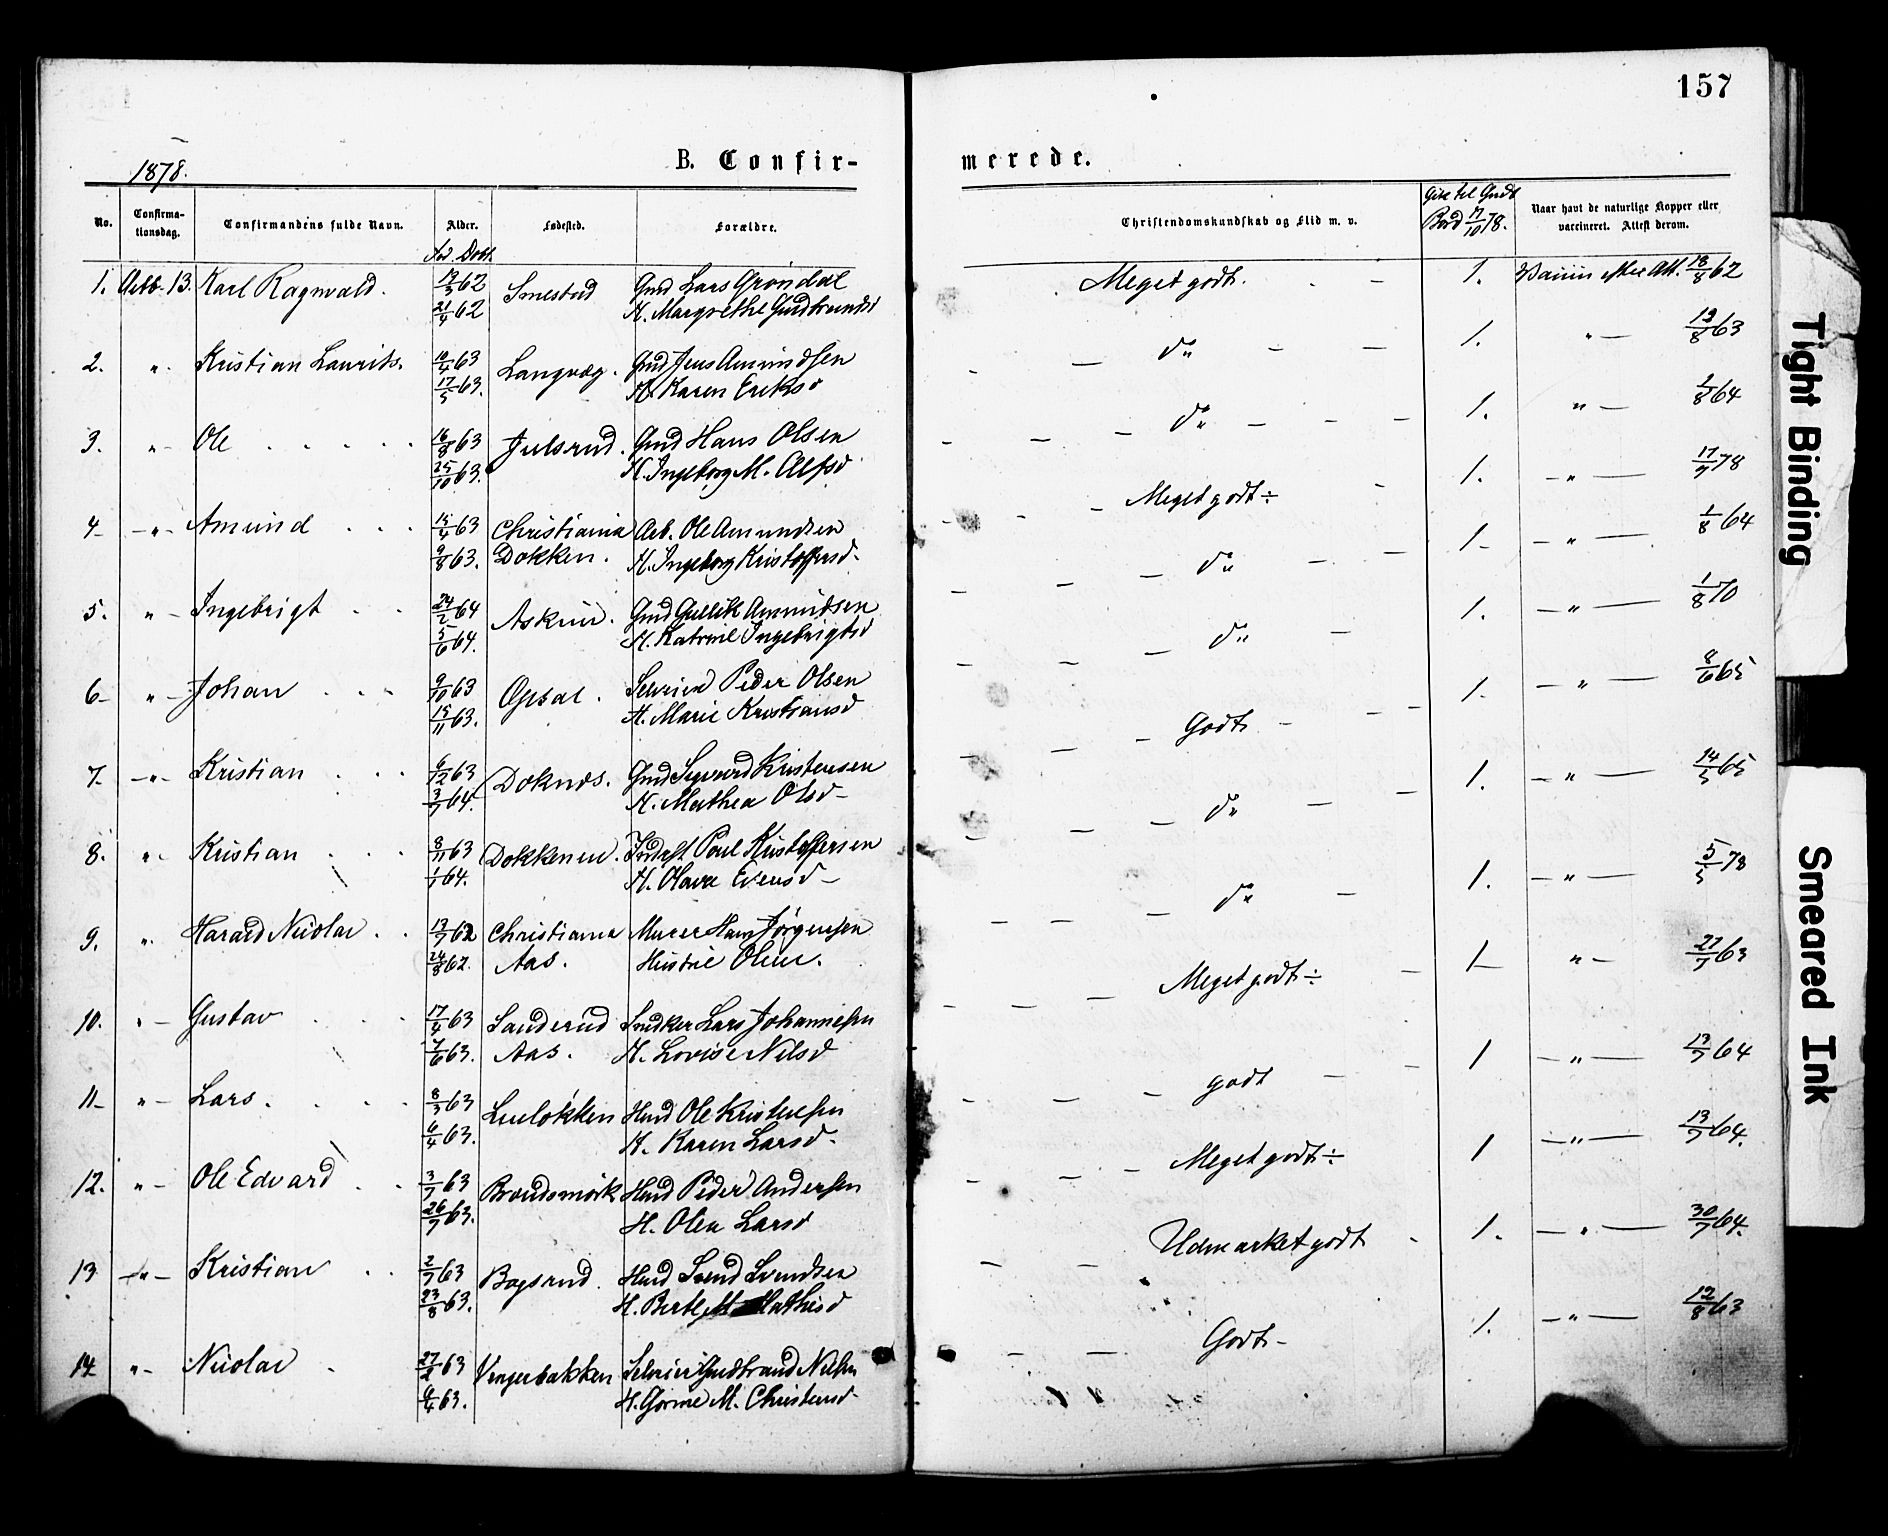 157
1878.
B. Confir-
merede.
No.
Confirma-
tionsdag.
Confirmandens fulde Navn.
Alder.
Fød. Døbt
Fødested.
Forældre.
Christendomskundskab og Flid m. v.
Gik til Guds
Bord 17/10 78.
Naar havt de naturlige Kopper eller
vaccineret. Attest derom.
1. Octb. 13. Karl Ragnvald. 13/3 62 Smestad Gmd Lars Grøndal Meget godt. 1. Vaccin efter Att. 18/8 62
21/4 62 H. Margrethe Gudbrandsd
2. " Kristian Laurits. 10/4 63 Langvæg. Gmd Jens Amundsen do 1. " 13/8 63
17/5 63. H. Karen Eriksd
3. " Ole 16/8 63 Julsrud. Gmd Hans Olsen do 1. " /8 64
25/10 63. H. Ingeborg M. Alfsd
4 " Amund /4 63 Christiania Arb. Ole Amundsen Meget godt ÷ 1. " 17/7 78
9/8 63. Dokken. H. Ingeborg Kristoffersd.
5. " Ingebrigt 24/2 64 Askim. Gmd Gullik Amundsen do 1 " 1/8 64
5/6 64. H. Katrine Ingebrigtsd
6 " Johan 9/10 63 Opsal. Peder Olsen do 1. " 1/8 70
15/11 63. H. Marie Kristiansd
7. " Kristian 6/12 63 Doknes. Gmd Sigvard Kristensen Godt 1. " 8/6 65
3/7 64. H. Mathea Olsd
8. " Kristian 8/11 63 Dokkenen. Indst Poul Kristoffersen do 1. " 14/5 65
1/1 64. H. Olava Evensd
9. " Harald Nicolai 13/7 62 Christiania Murer Hans Jørgensen do 1. " 5/5 78
24/8 62. Aas. Hustrie Oline.
10. " Gustav 17/4 63 Sanderud Snedker Lars Johannesen Meget godt ÷ 1 " 27/7 63
7/6 63. Aas. H. Lovise Nilsd
11 " Lars. 8/3 63 Lueløkken Hmd Ole Kristensen godt 1 " 13/7 64
6/4 63. H. Karen Larsd.
12. " Ole Edvard 3/7 63 Brændsmørk Hmd Peder Andersen Meget godt ÷ 1 " 13/7 64.
26/7 63. H. Olea Larsd
13 " Kristian 2/7 63 Bogsrud Hmd Svend Svendsen Udmærket godt 1. " 30/7 64.
23/8 63. H. Berthe M Mathisd
14 " Nicolai 27/2 63 Gudbrand Nilsen Godt 1. " 12/8 63
6/4 63. H. M. Christensd.
Tight Binding
Smeared Ink